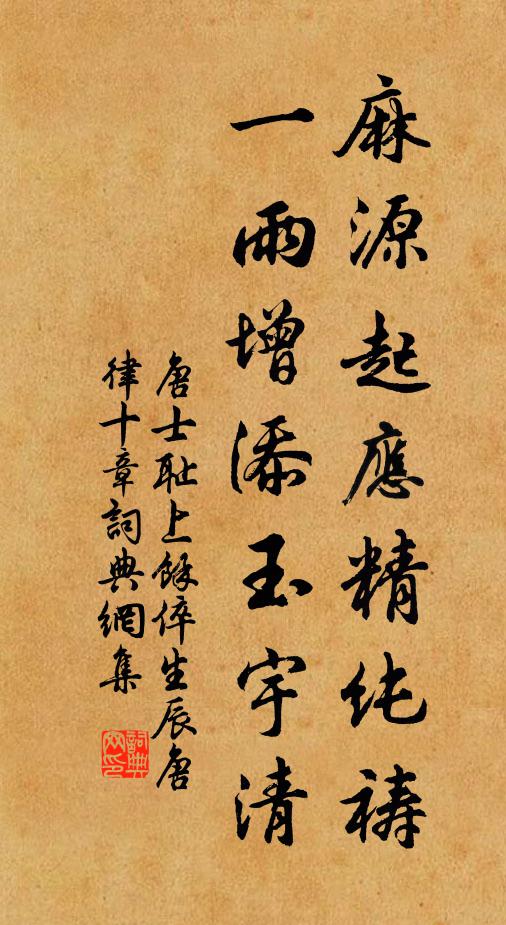 麻源起應精純禱
一雨增添玉宇清
唐士耻上餘倅生辰唐
律十章詞典網集
詞典網印